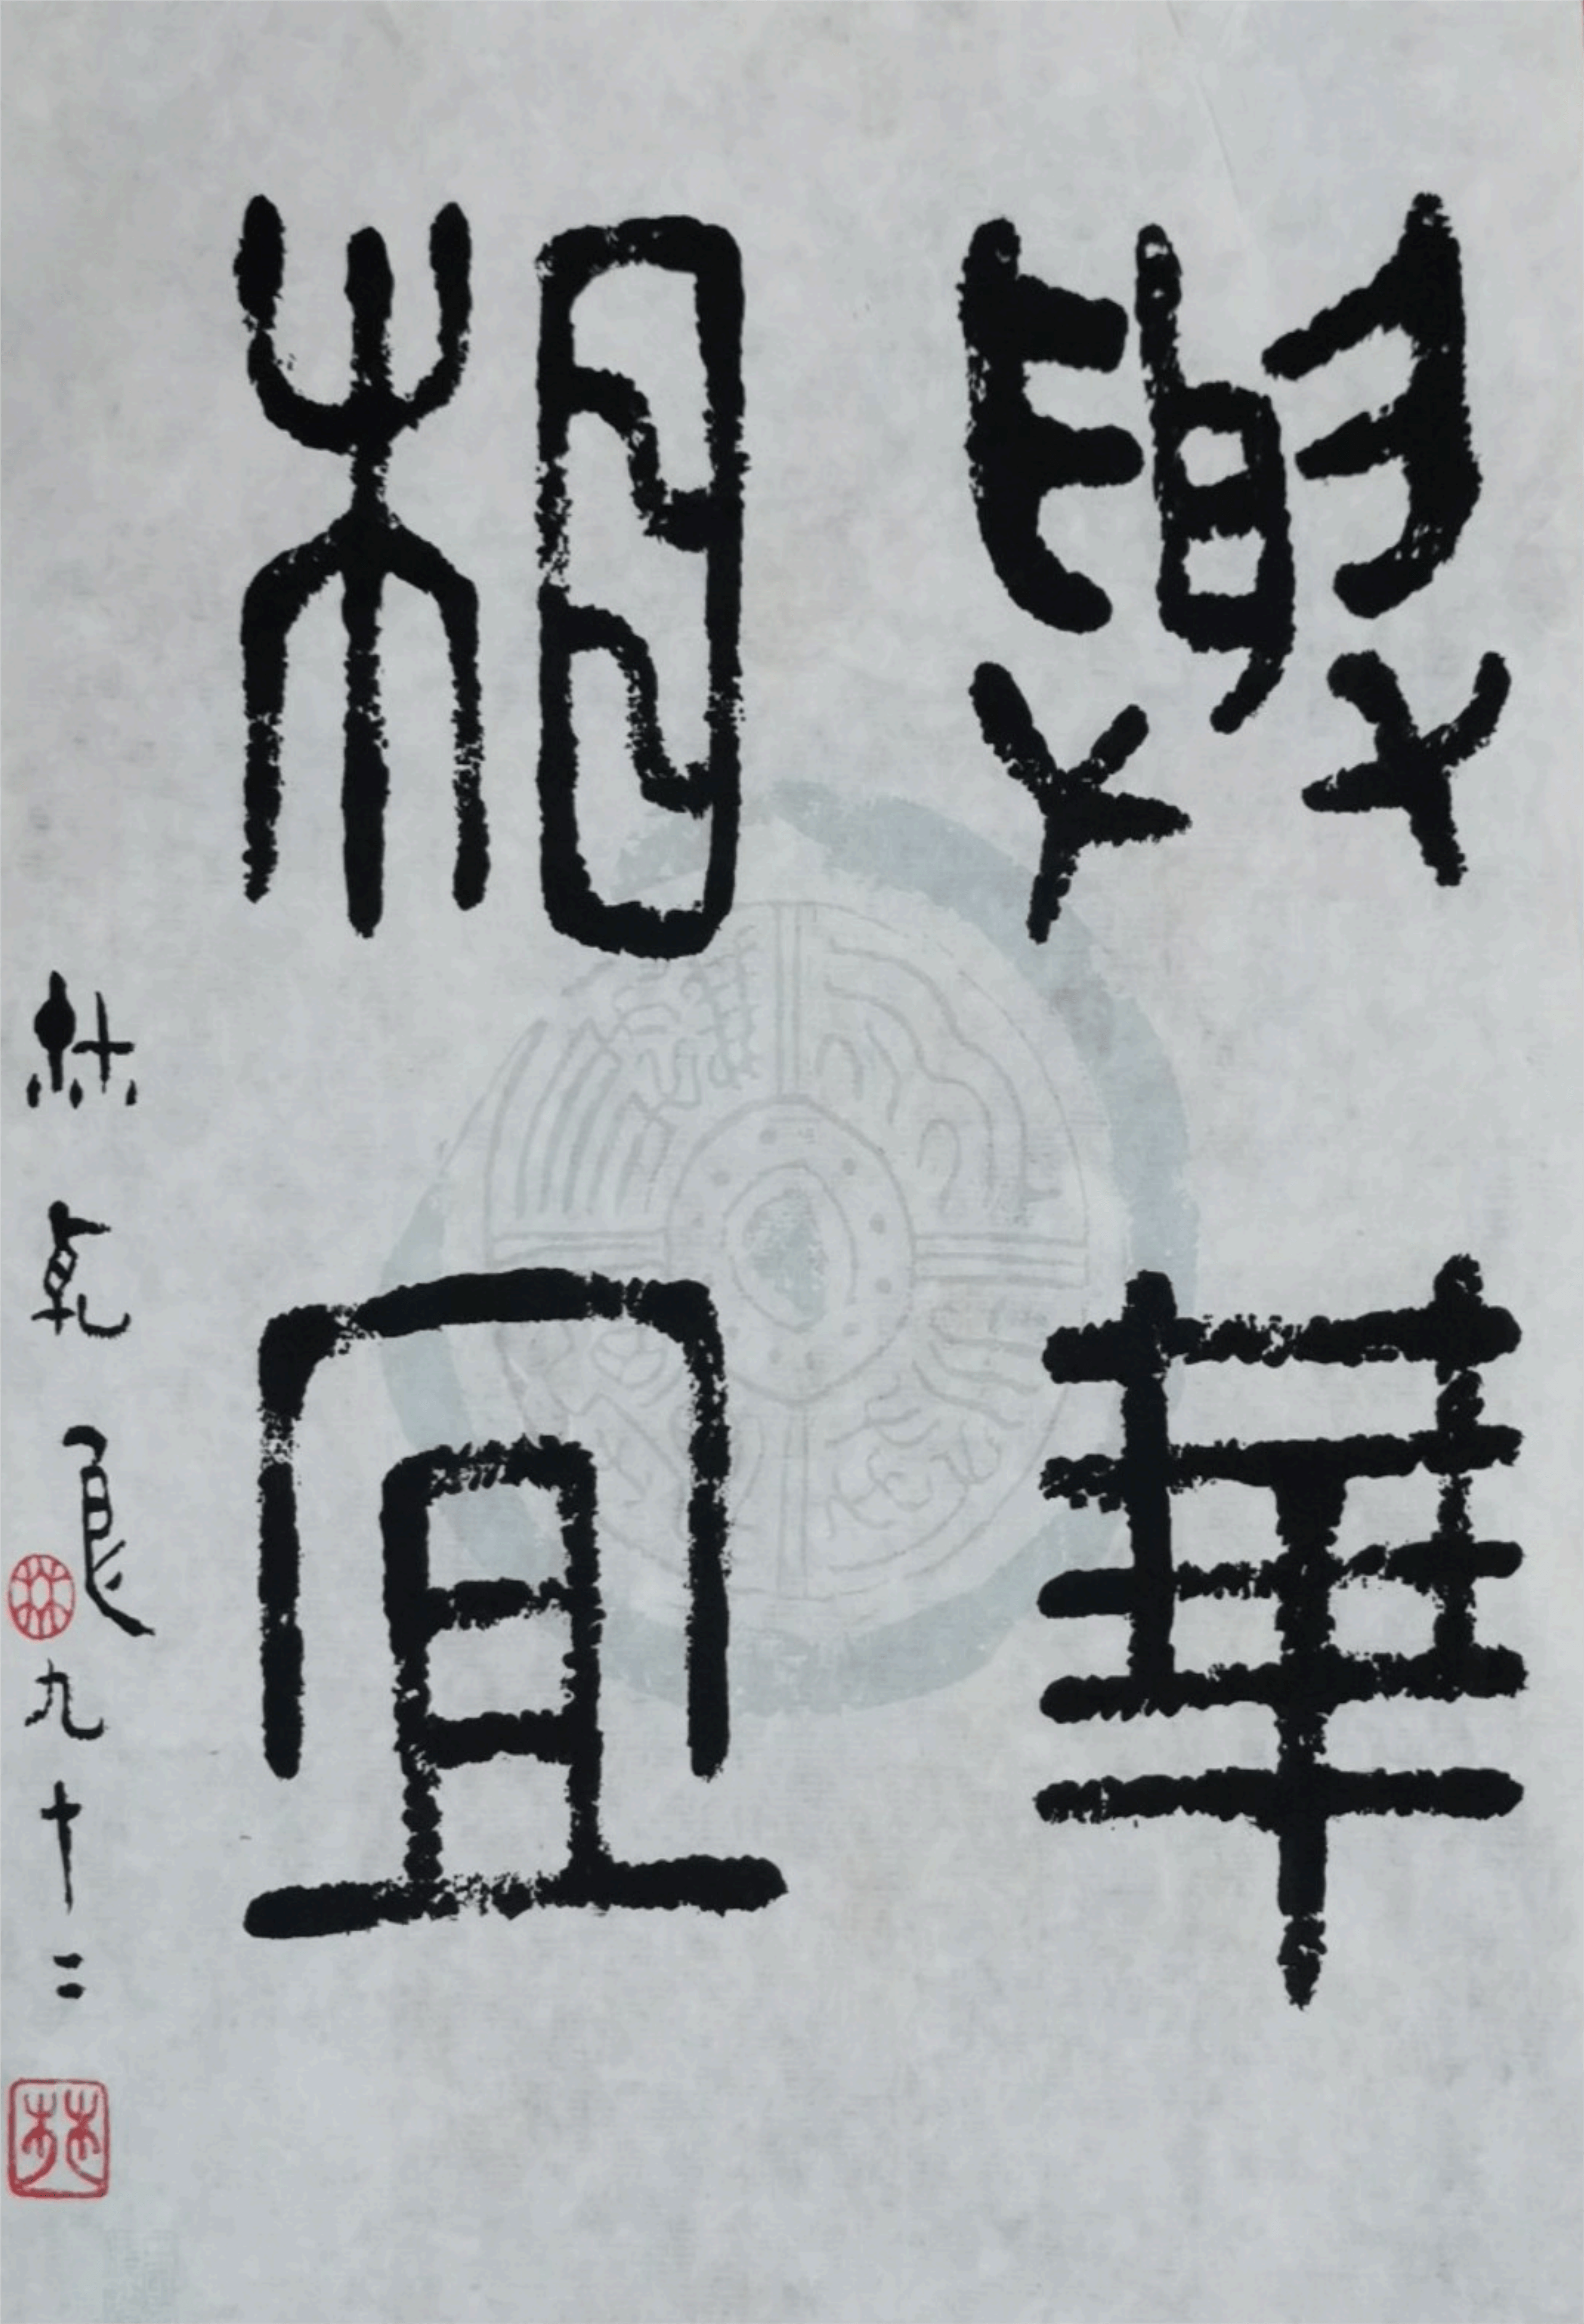 與華
相宜
林乾良九十二
林